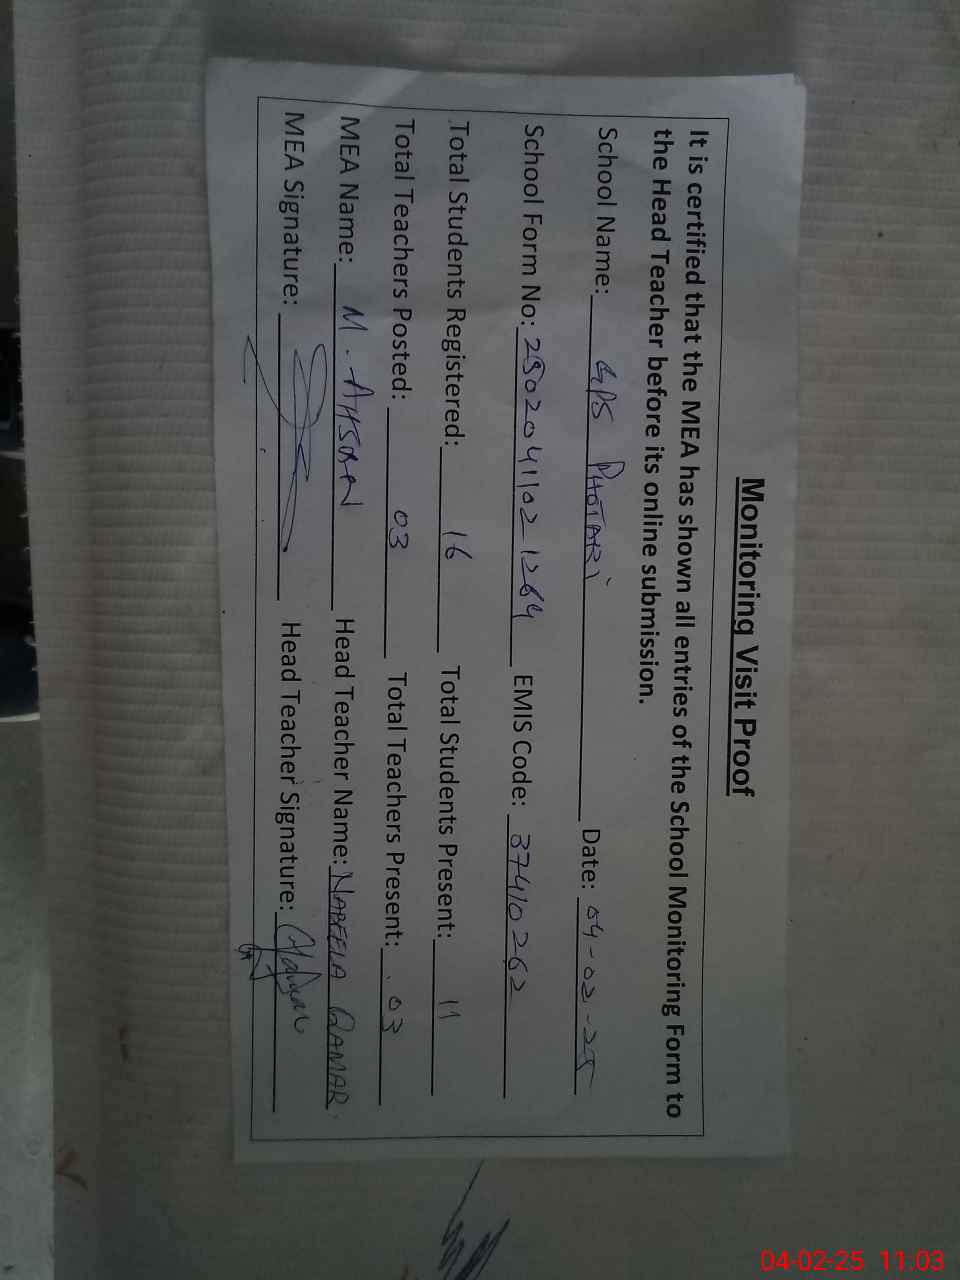 Monitoring Visit Proof
It is certified that the MEA has shown all entries of the School Monitoring Form to
the Head Teacher before its online submission.
School Name: GPS PHOTARI Date: 04-02-25
School Form No: 25020411021264 EMIS Code: 37410262
Total Students Registered: 16 Total Students Present: 11
Total Teachers Posted: 03 Total Teachers Present: 03
MEA Name: M. AHSAN Head Teacher Name: NABEELA QAMAR
MEA Signature: Head Teacher Signature:
04-02-25 11:03